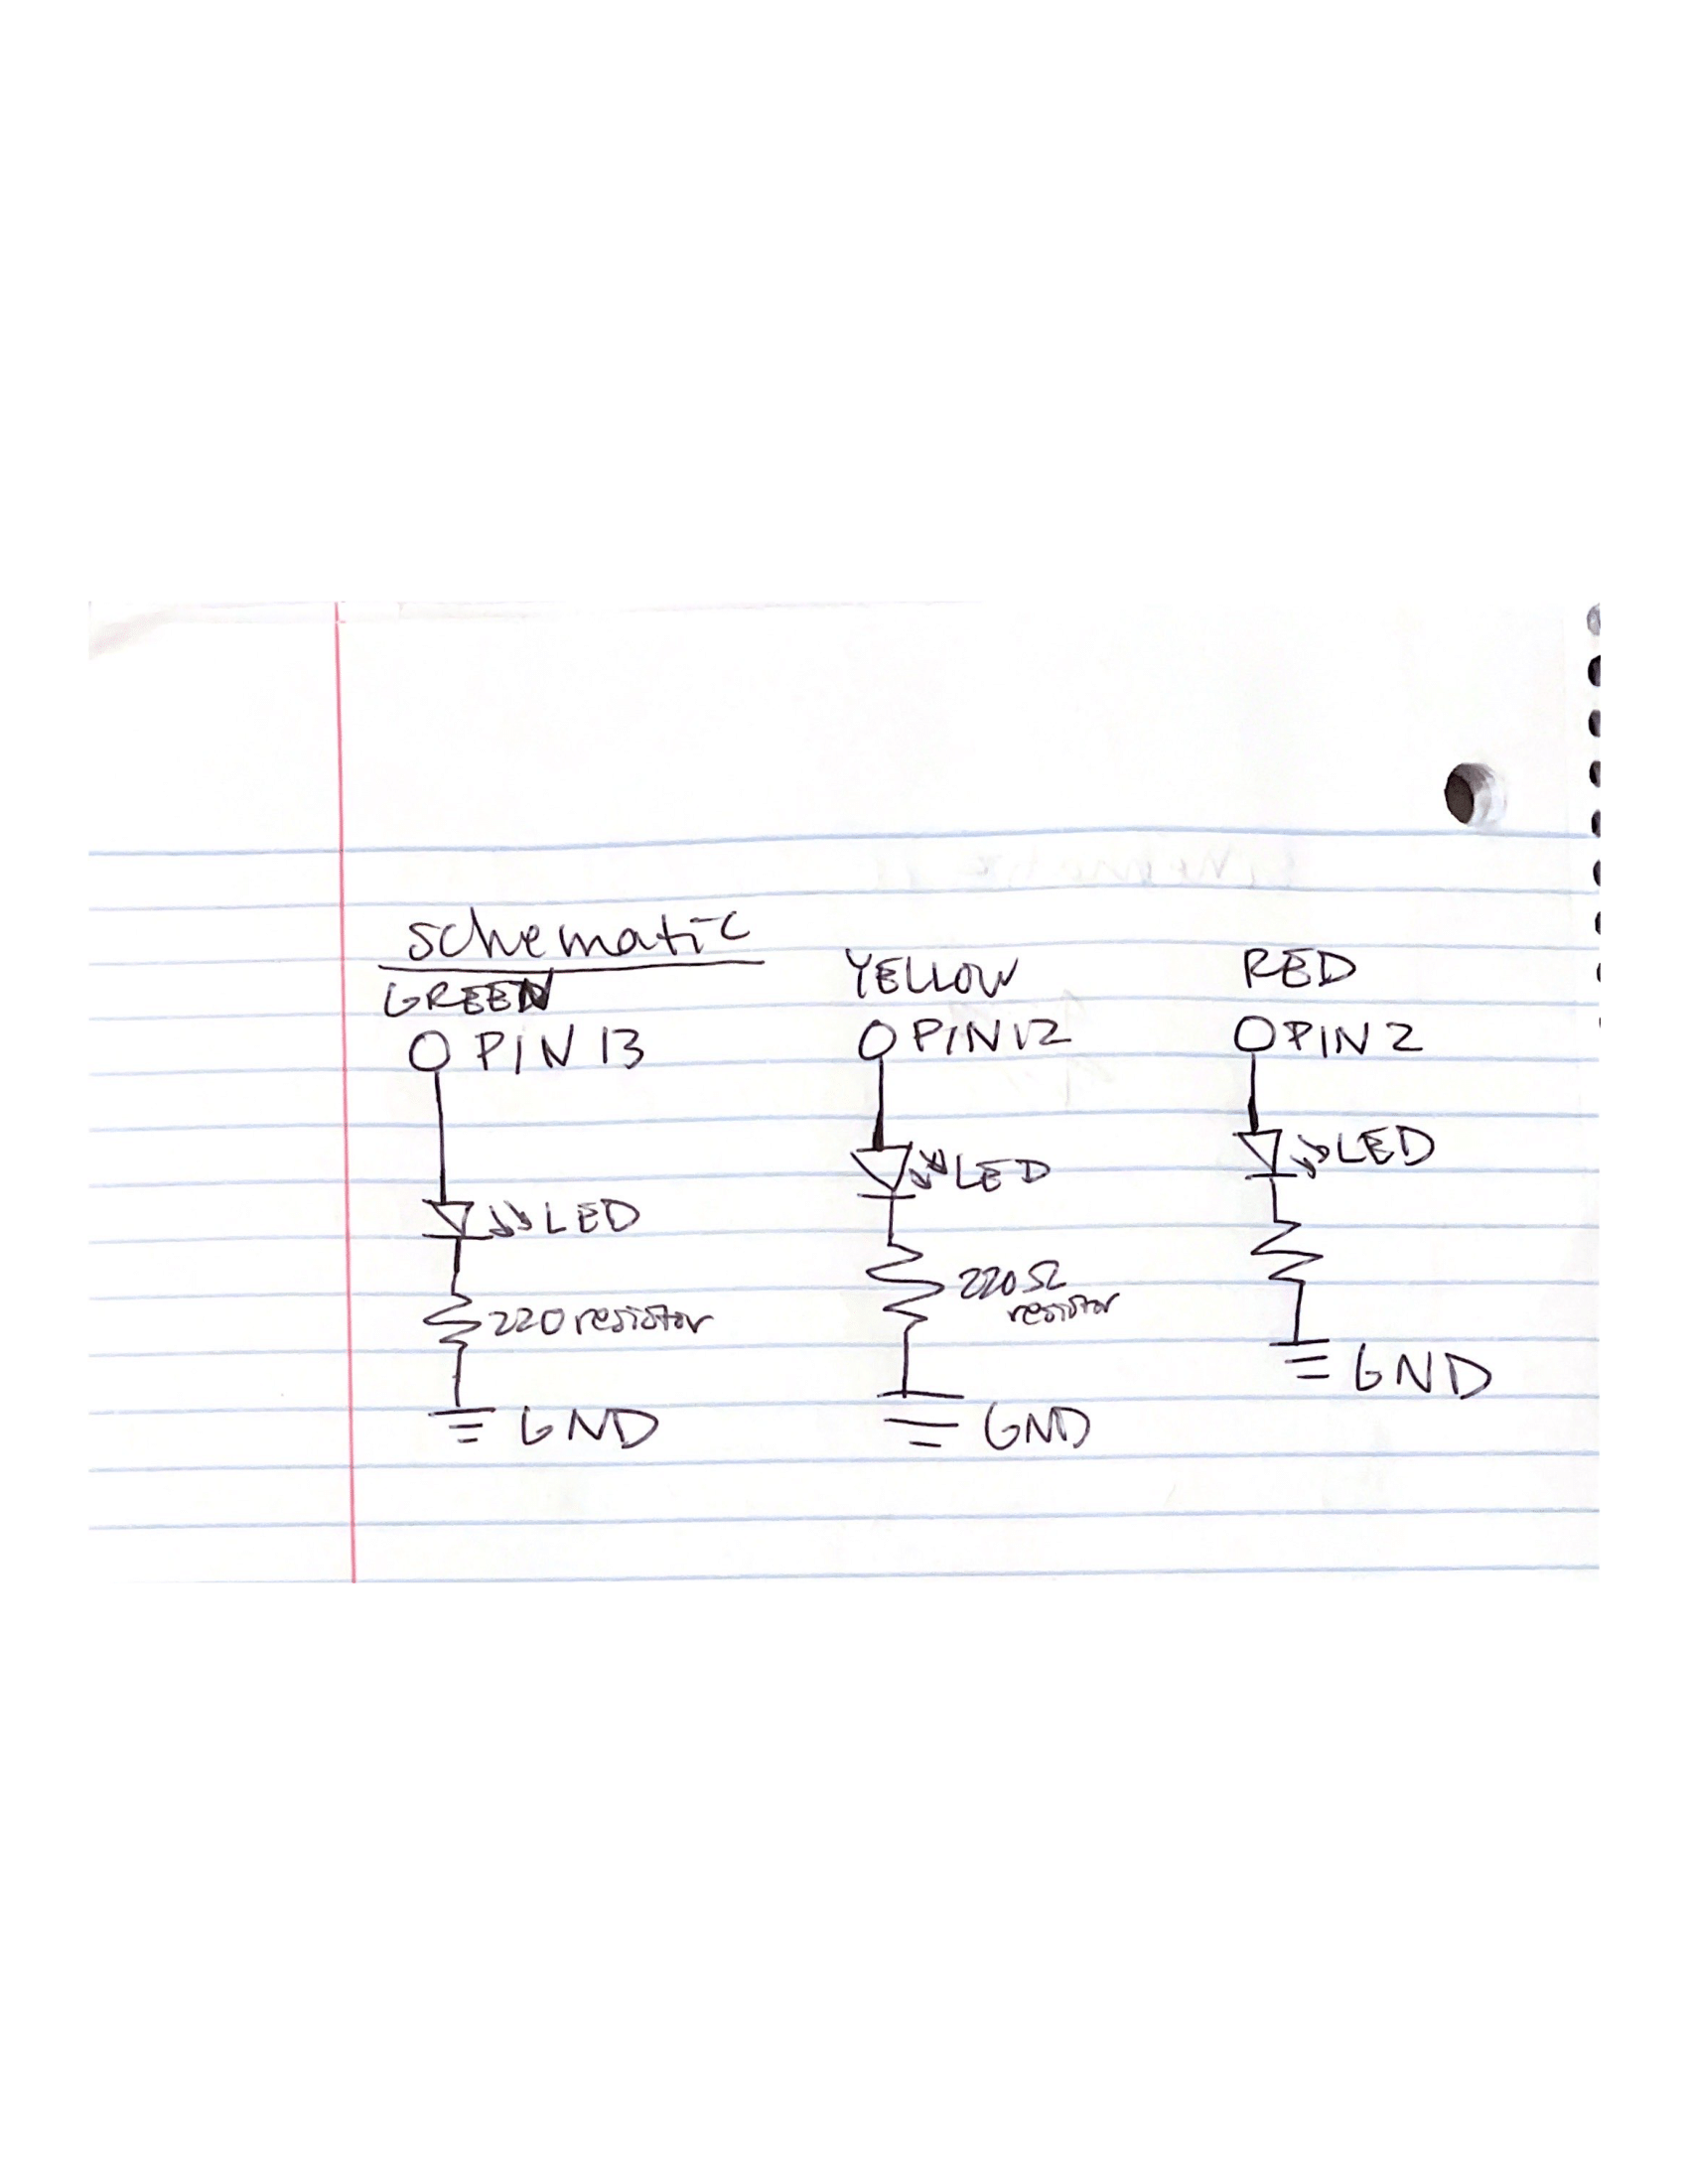 schematic
GREEN
PIN 13
LED
220 resistor
GND
YELLOW
PIN 12
LED
220Ω
resistor
GND
RED
PIN 2
LED
GND